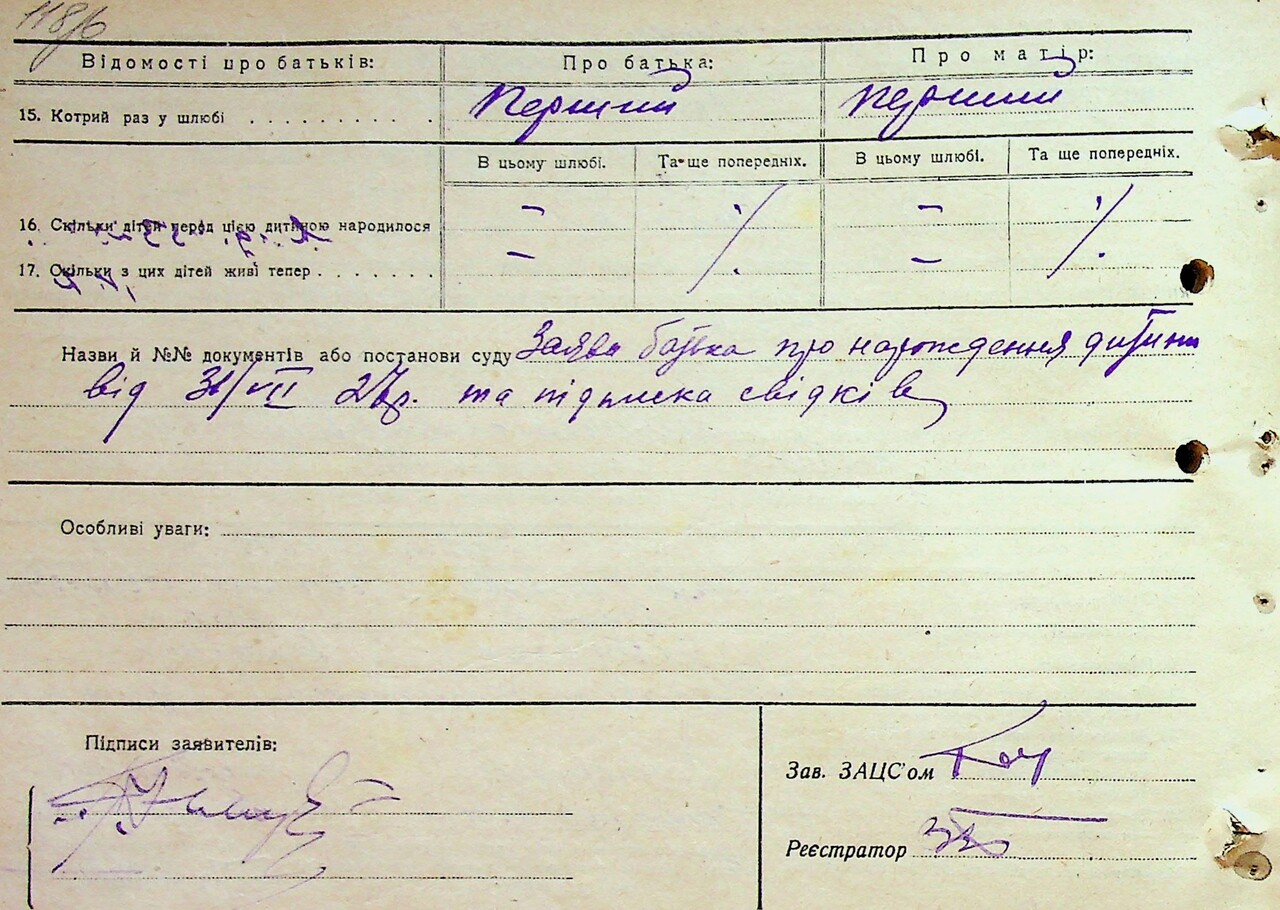 118/6
Відомості про батьків: Про батька: Про матір:
15. Котрий раз у шлюбі . . . . . . . . . . перший перший
В цьому шлюбі. Та ще попередніх. В цьому шлюбі. Та ще попередніх.
16. Скільки дітей перед цією дитиною народилося – –
17. Скільки з цих дітей живі тепер . . . . . . . – –
Назви й №№ документів або постанови суду Заява батька про нарождення дитини
від 31/VII 27р. та підписка свідків
Особливі уваги:
Підписи заявителів:
Зав. ЗАЦС'ом
Реєстратор